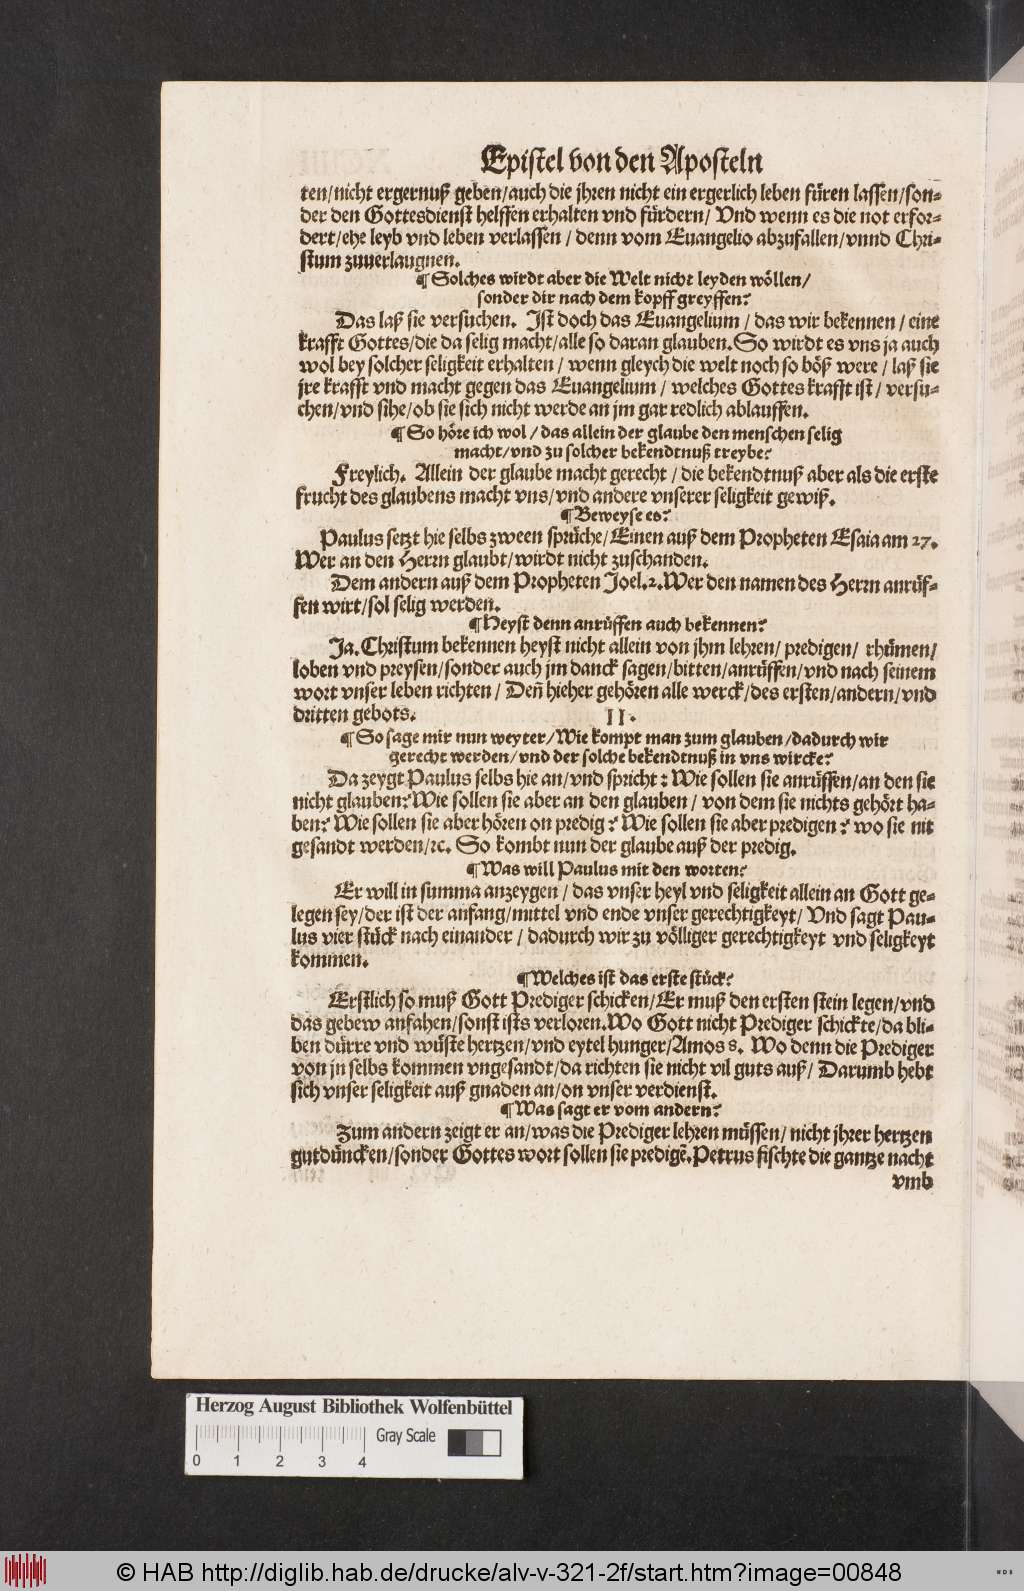 Epistel von den Aposteln
ten/nicht ergernuß geben/auch die jhren nicht ein ergerlich leben füren lassen/son-
der den Gottesdienst helffen erhalten vnd fürdern/ Vnd wenn es die not erfor-
dert/ehe leyb vnd leben verlassen / denn vom Euangelio abzufallen/vnnd Chri-
stum zuuerlaugnen.
¶ Solches wirdt aber die Welt nicht leyden wöllen/
sonder dir nach dem kopff greyffen?
Das laß sie versuchen. Ist doch das Euangelium / das wir bekennen / eine
krafft Gottes/die da selig macht/alle so daran glauben. So wirdt es vns ja auch
wol bey solcher seligkeit erhalten / wenn gleych die welt noch so böß were / laß sie
jre krafft vnd macht gegen das Euangelium / welches Gottes krafft ist / versu-
chen/vnd sihe/ob sie sich nicht werde an jm gar redlich ablauffen.
¶ So höre ich wol / das allein der glaube den menschen selig
macht/vnd zu solcher bekendtnuß treybe?
Freylich. Allein der glaube macht gerecht / die bekendtnuß aber als die erste
frucht des glaubens macht vns/vnd andere vnserer seligkeit gewiß.
¶ Beweyse es?
Paulus setzt hie selbs zween sprüche/Einen auß dem Propheten Esaia am 27.
Wer an den Herrn glaubt/wirdt nicht zuschanden.
Dem andern auß dem Propheten Joel.2. Wer den namen des Herrn anrüf-
fen wirt/sol selig werden.
¶ Heyst denn anrüffen auch bekennen?
Ja. Christum bekennen heyst nicht allein von jhm lehren/ predigen/ rhümen/
loben vnd preysen/sonder auch jm danck sagen/bitten/anrüffen/vnd nach seinem
wort vnser leben richten / Deñ hieher gehören alle werck/des ersten/andern/vnd
dritten gebots. II.
¶ So sage mir nun weyter/Wie kompt man zum glauben/dadurch wir
gerecht werden/vnd der solche bekendtnuß in vns wircke?
Da zeygt Paulus selbs hie an/vnd spricht: Wie sollen sie anrüffen/an den sie
nicht glauben? Wie sollen sie aber an den glauben / von dem sie nichts gehört ha-
ben? Wie sollen sie aber hören on predig? Wie sollen sie aber predigen? wo sie nit
gesandt werden/ꝛc. So kombt nun der glaube auß der predig.
¶ Was will Paulus mit den worten?
Er will in summa anzeygen / das vnser heyl vnd seligkeit allein an Gott ge-
legen sey/der ist der anfang/mittel vnd ende vnser gerechtigkeyt/ Vnd sagt Pau-
lus vier stück nach einander / dadurch wir zu völliger gerechtigkeyt vnd seligkeyt
kommen.
¶ Welches ist das erste stück?
Erstlich so muß Gott Prediger schicken/Er muß den ersten stein legen/vnd
das gebew anfahen/sonst ists verloren. Wo Gott nicht Prediger schickte/da bli-
ben dürre vnd wüste hertzen/vnd eytel hunger/Amos 8. Wo denn die Prediger
von jn selbs kommen vngesandt/da richten sie nicht vil guts auß/ Darumb hebt
sich vnser seligkeit auß gnaden an/on vnser verdienst.
¶ Was sagt er vom andern?
Zum andern zeigt er an/was die Prediger lehren müssen/ nicht jhrer hertzen
gutdüncken/sonder Gottes wort sollen sie predigē. Petrus fischte die gantze nacht
vmb
Herzog August Bibliothek Wolfenbüttel
Gray Scale
0 1 2 3 4
© HAB http://diglib.hab.de/drucke/alv-v-321-2f/start.htm?image=00848